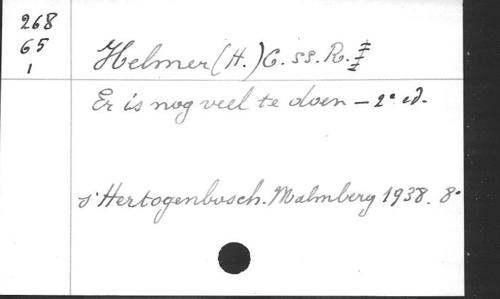 268
65
1
Helmer (H.) C. ss. R. ‡
Er is nog veel te doen – 2e ed.
s'Hertogenbosch. Malmberg 1938. 8°